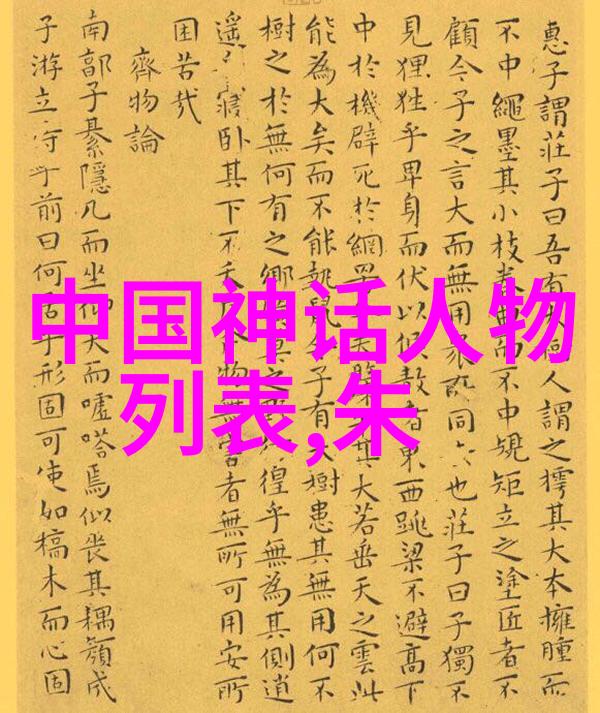 中国神话人物
列表,朱
惠子謂莊子曰吾有大樹人謂之樗其大本擁腫而
不中繩墨其小枝卷曲而不中規矩立之塗匠者不
顧今子之言大而無用衆所同去也莊子曰子獨不
見狸狌乎卑身而伏以候敖者東西跳梁不避高下
中於機辟死於網罟
其大若垂天之雲此
能為大矣而不能執鼠今子有大樹患其無用何不
樹之於無何有之鄉
徨乎無為其側逍
遥
寢臥其下不夭
物無害者無所可用安所
困苦哉
齊物論
南郭子綦隱几而坐仰天而噓嗒焉似喪其耦顏成
子游立侍乎前曰何居乎形固可使如槁木而心固